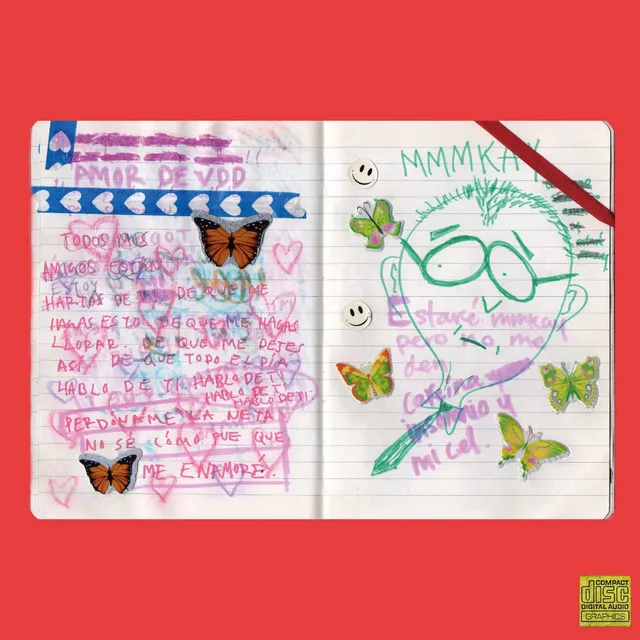 AMOR DE V.D.D
TODOS MIS
AMIGOS ESTÁN
ESTOY
HARTOS DE DE QUE ME
HAGAS ESTO. DE QUE ME HAGAS
LLORAR. DE QUE ME DEJES
ASÍ. DE QUE TODO EL DÍA
HABLO DE TI. HABLO DE TI
HABLO DE TI
HABLO DE TI.
PERDÓNAME LA NETA
NO SÉ CÓMO FUE QUE
ME ENAMORÉ.
MMMKAY
Estaré mmkay
pero no me
den
y
mi cel.
COMPACT
disc
DIGITAL AUDIO
GRAPHICS